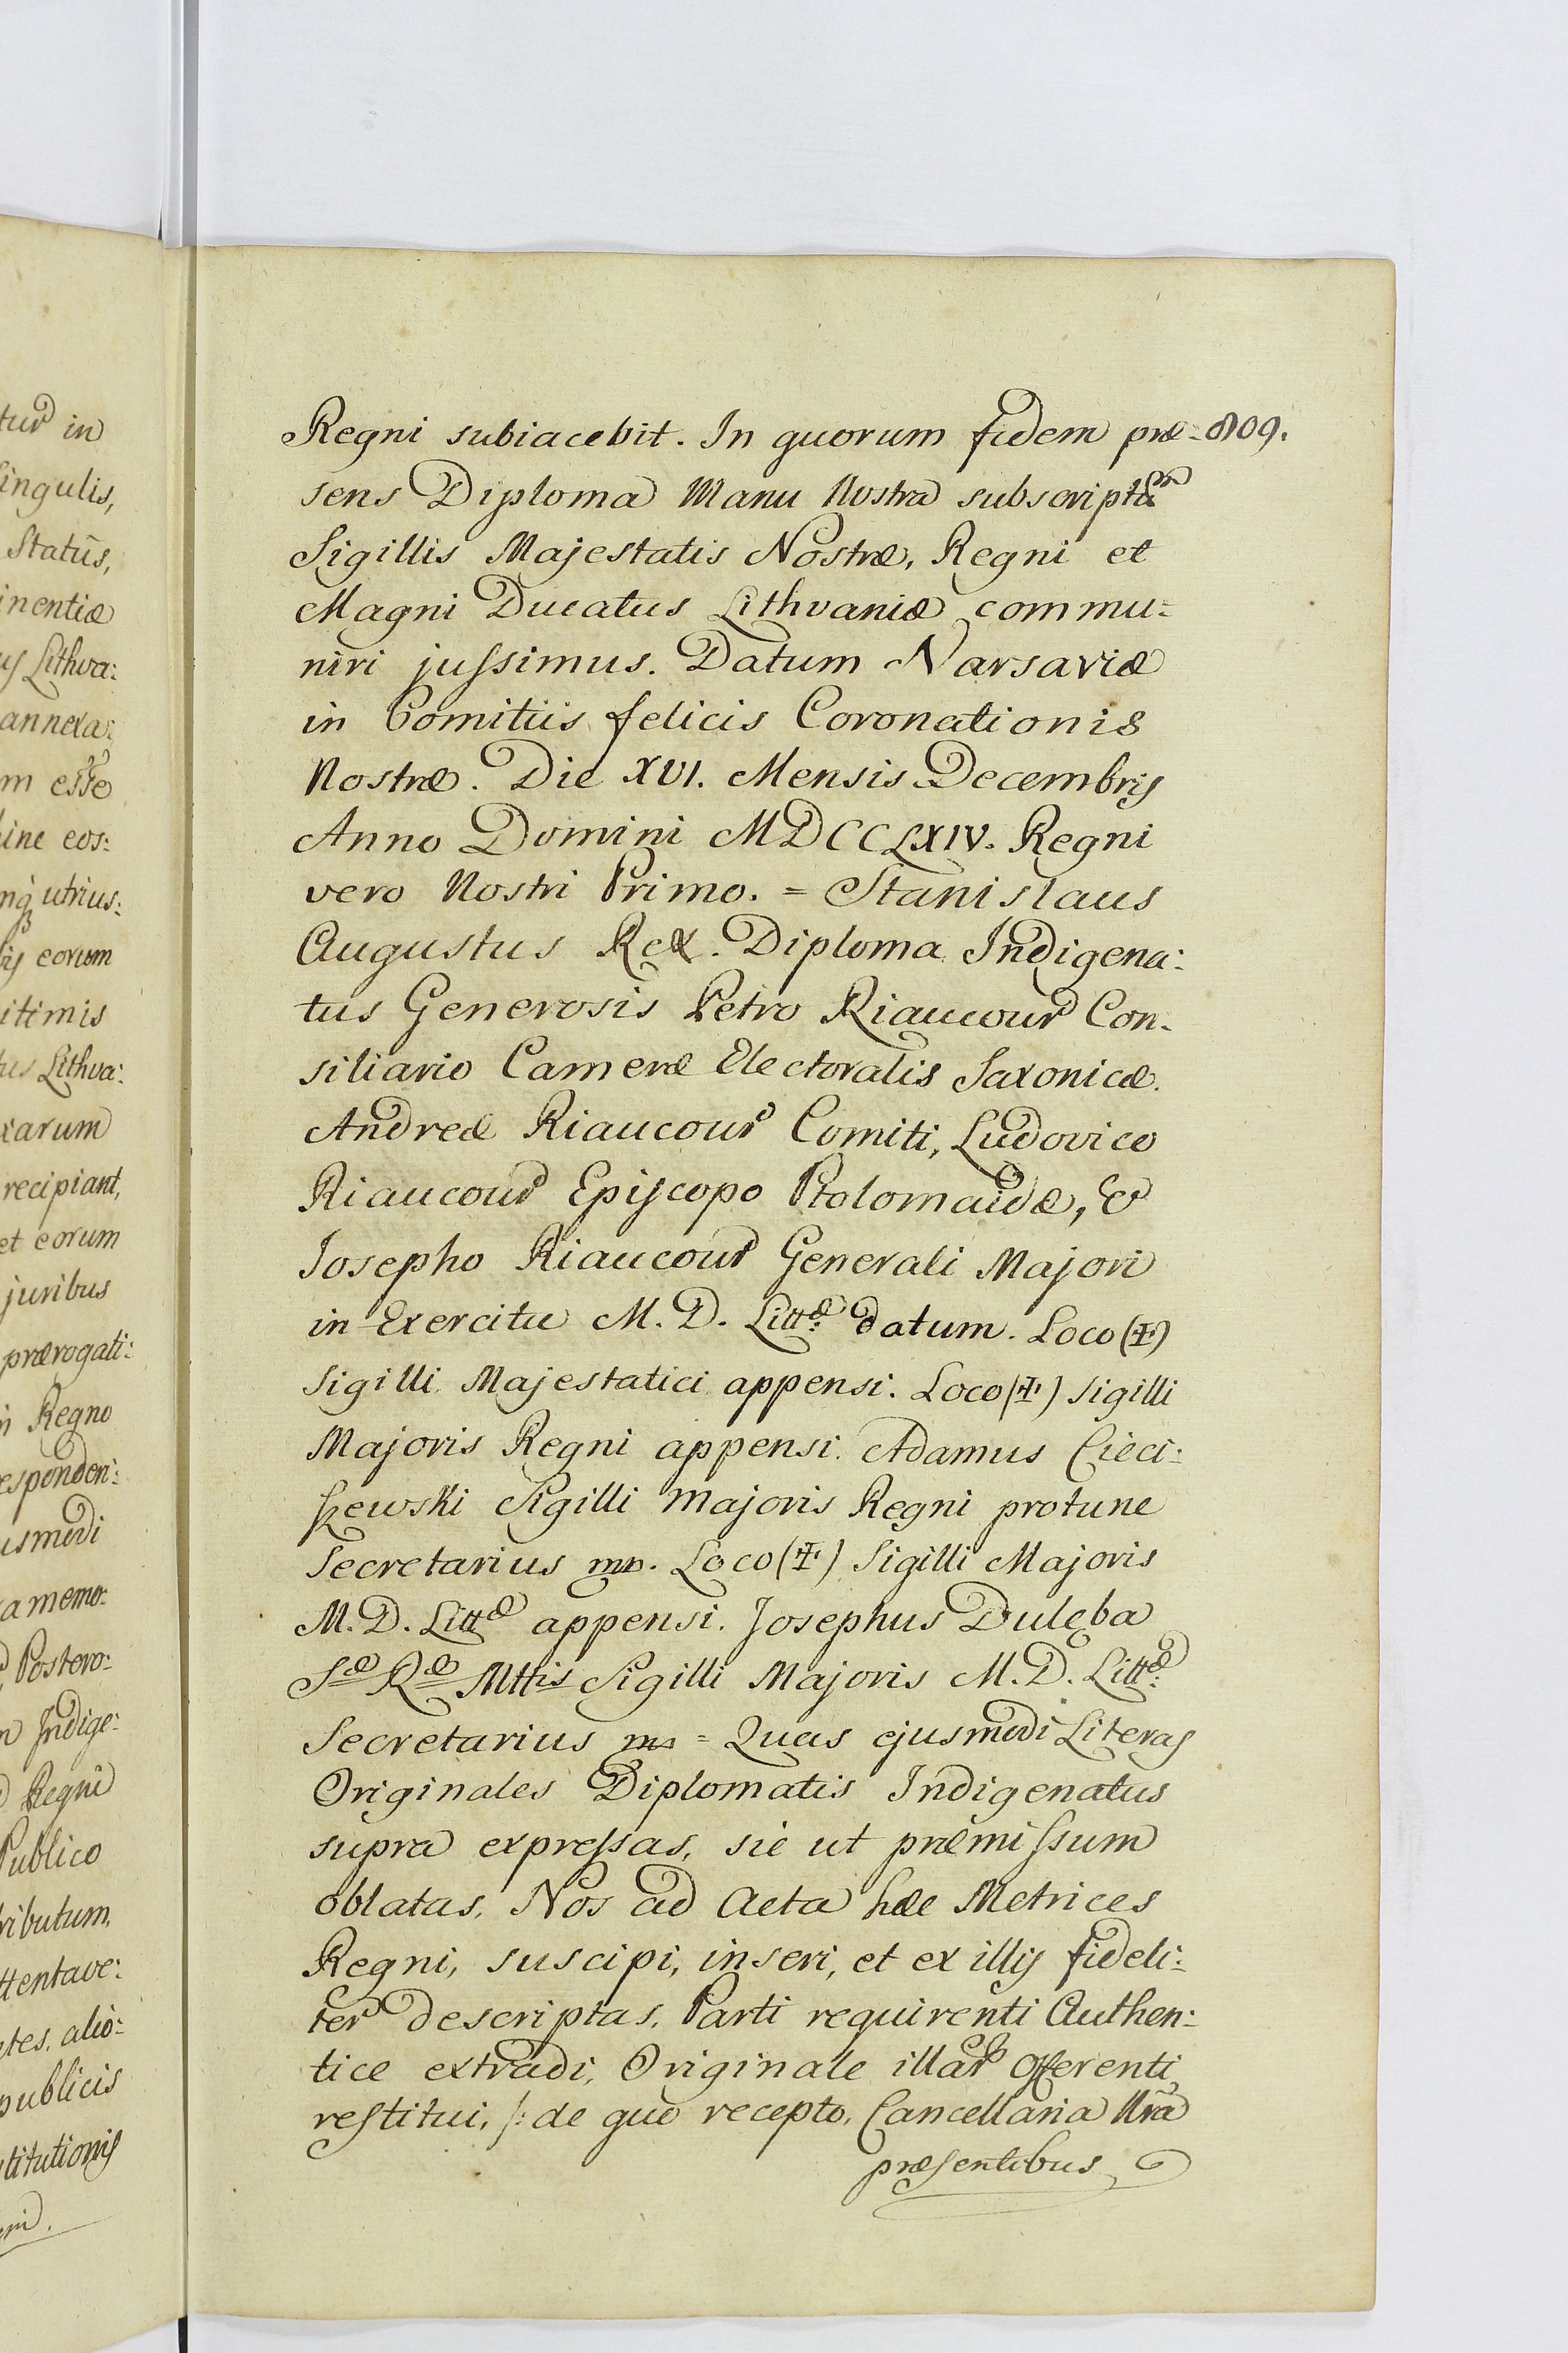 Regni subiacebit. In quorum fidem præ- 809.
sens Diploma Manu Nostra subscriptũ
Sigillis Majestatis Nostræ, Regni et
Magni Ducatus Lithvaniæ commu:
niri jussimus. Datum Varsaviæ
in Comitiis felicis Coronationis
Nostræ. Die XVI. Mensis Decembris
Anno Domini MDCCLXIV. Regni
vero Nostri Primo. = Stanislaus
Augustus Rex. Diploma Indigena:
tus Generosis Petro Riaucour Con-
siliario Cameræ Electoralis Saxonicæ.
Andreæ Riaucour Comiti, Ludovico
Riaucour Episcopo Ptolomaidæ, &
Josepho Riaucour Generali Majori
in Exercitu M. D. Littæ: datum. Loco (✠)
Sigilli Majestatici appensi. Loco (✠) Sigilli
Majoris Regni appensi. Adamus Cieci:
szewski Sigilli Majoris Regni protunc
Secretarius mp. Loco (✠) Sigilli Majoris
M. D. Littæ appensi. Josephus Dulęba
Sæ Ræ Mttis Sigilli Majoris M. D. Littæ:
Secretarius mp = Quas ejusmodi Literas
Originales Diplomatis Indigenatus
supra expressas, sic ut præmissum
oblatas, Nos ad Acta hæc Metrices
Regni, suscipi, inseri, et ex illis fideli:
ter descriptas, Parti requirenti Authen:
tice extradi, Originale illar Offerenti
restitui, /: de quo recepto, Cancellaria Nrã
præsentibus